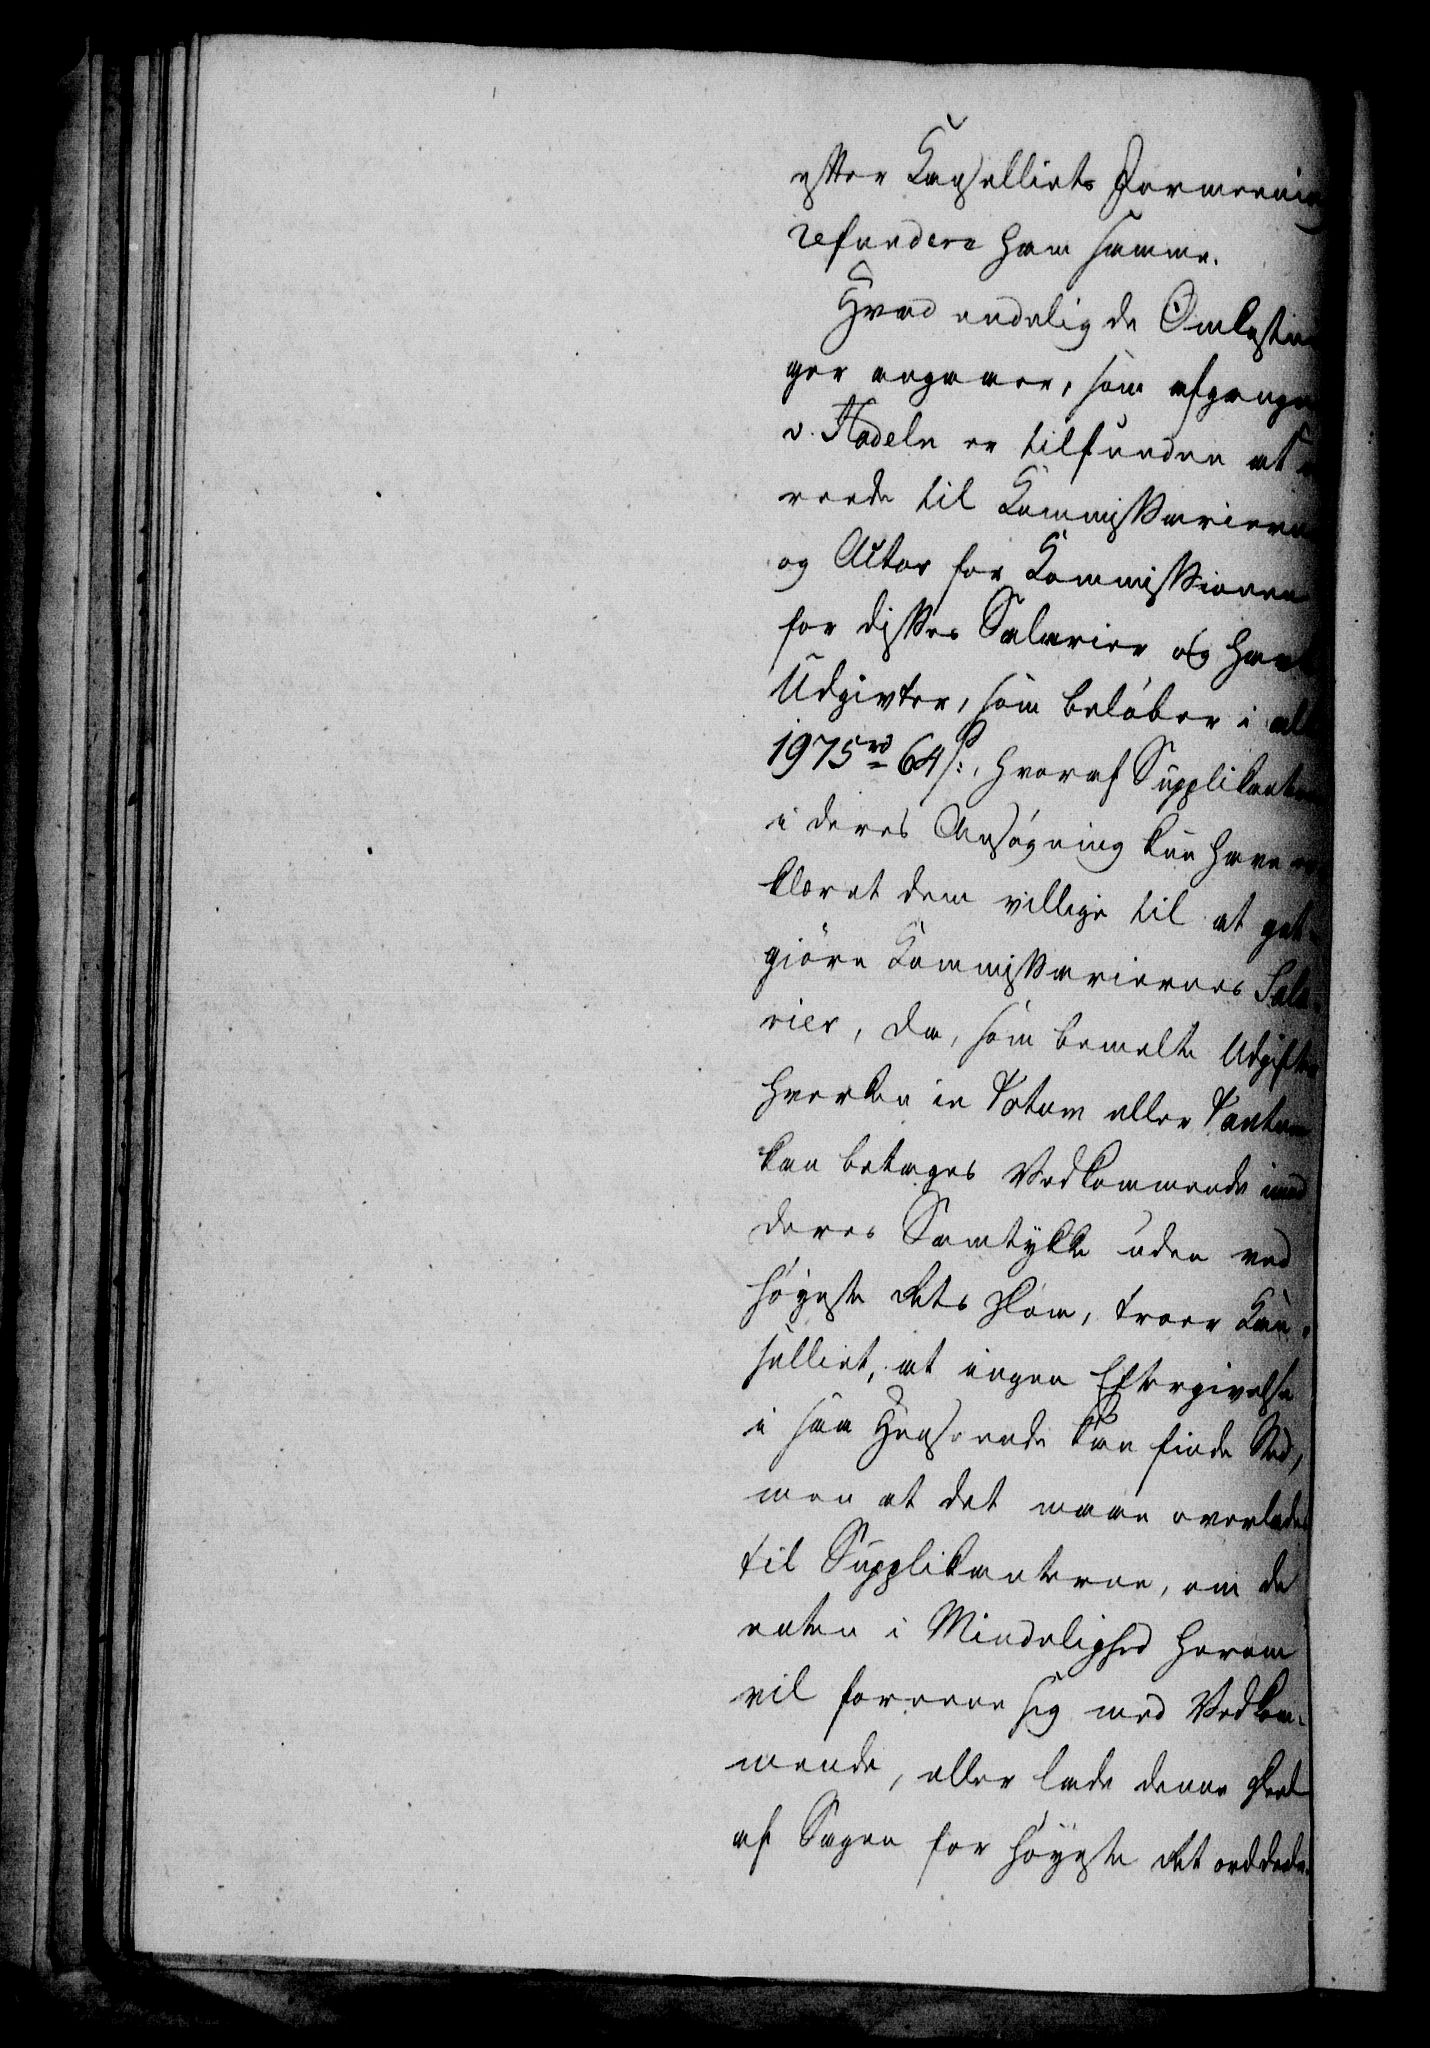 efter Kancelliets Formening
refundere ham samme.
Hvad endelig de Omkostnin
ger angaaer, som afgangne
v. Hadeln er tilfunden at
reede til Kommissarierne
og Actor for Kommissionen
for disses Salarier og havte
Udgivter, som beløber i alt
1975 rd 64 s:, hvoraf Supplikanterne
i deres Ansøgning kun have er
klæret dem villige til at got-
giöre Kommissariernes Sala-
rier, da, som bemelte Udgifter
hverken in Totum eller Tantum
kan betages Vedkommende imod
deres Samtykke uden ved
höyeste Rets Dom, troer Kan-
celliet, at ingen Eftergivelse
i saa Henseende kan finde Sted,
men at det maae overlades
til Supplikanterne, om de
enten i Mindelighed herom
vil foreene sig med Vedkom-
mende, eller lade denne Deel
af Sagen for höyeste Ret